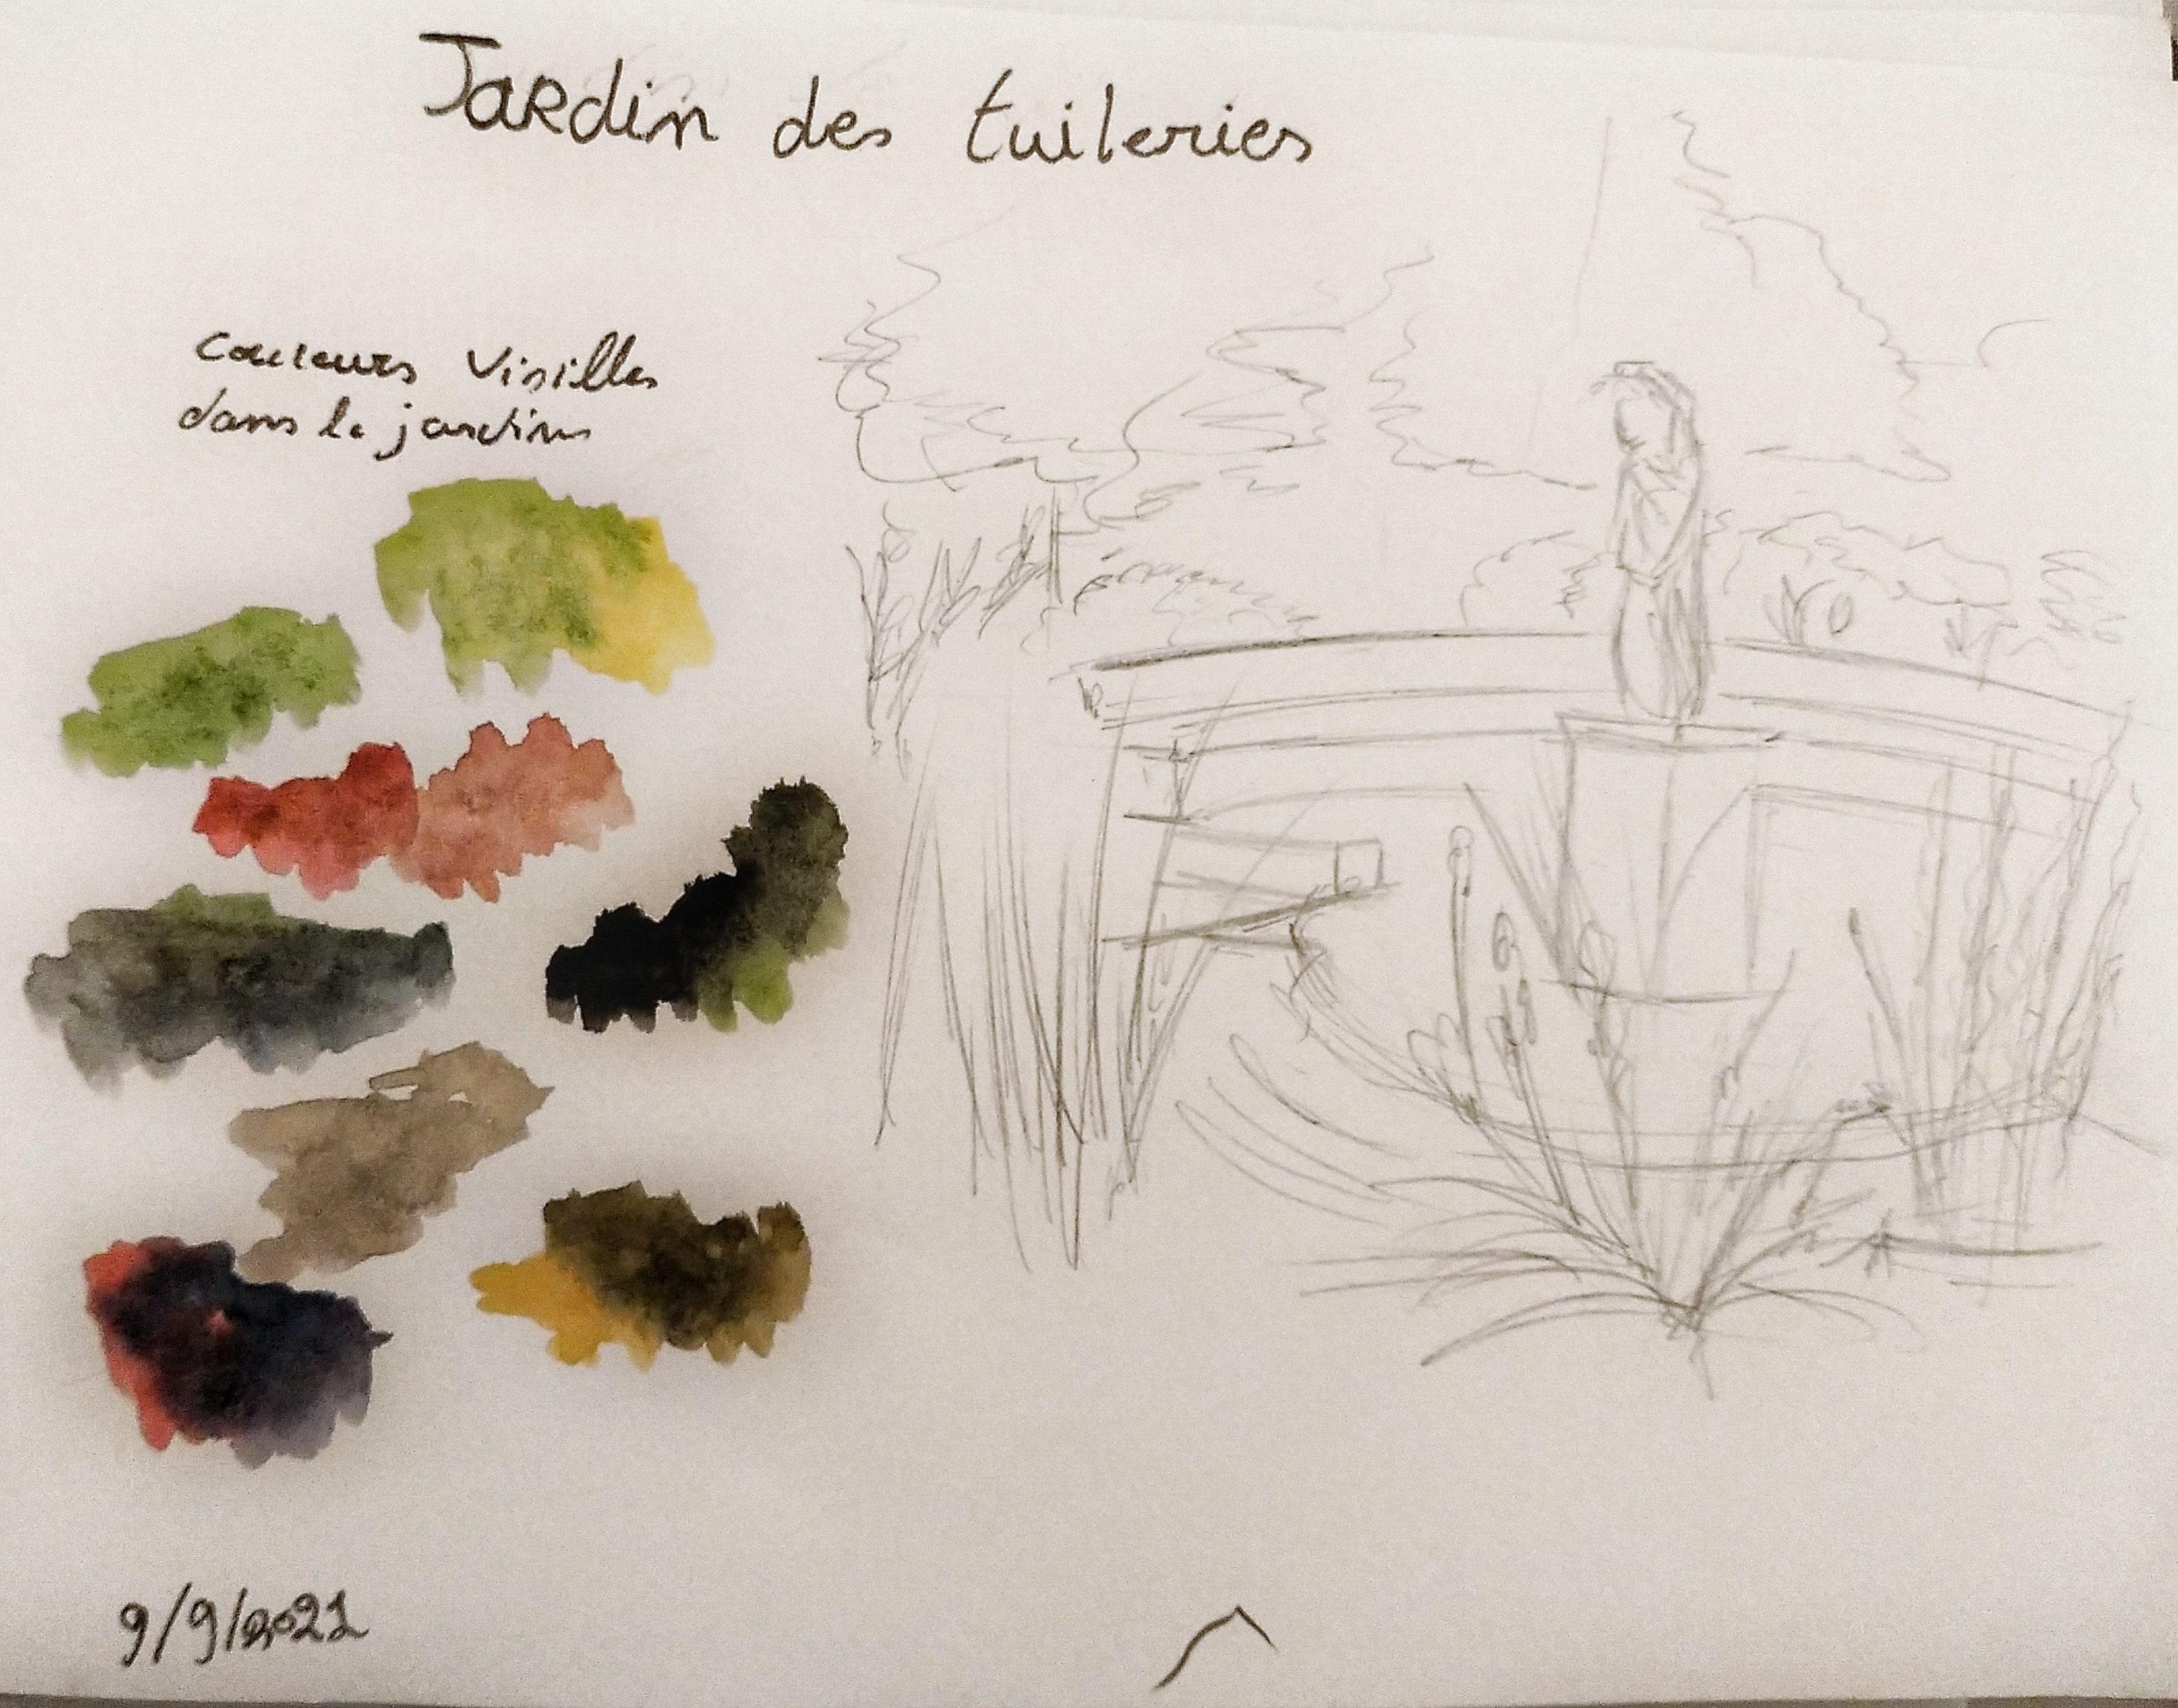 Jardin des tuileries
couleurs visibles
dans le jardins
9/9/2021